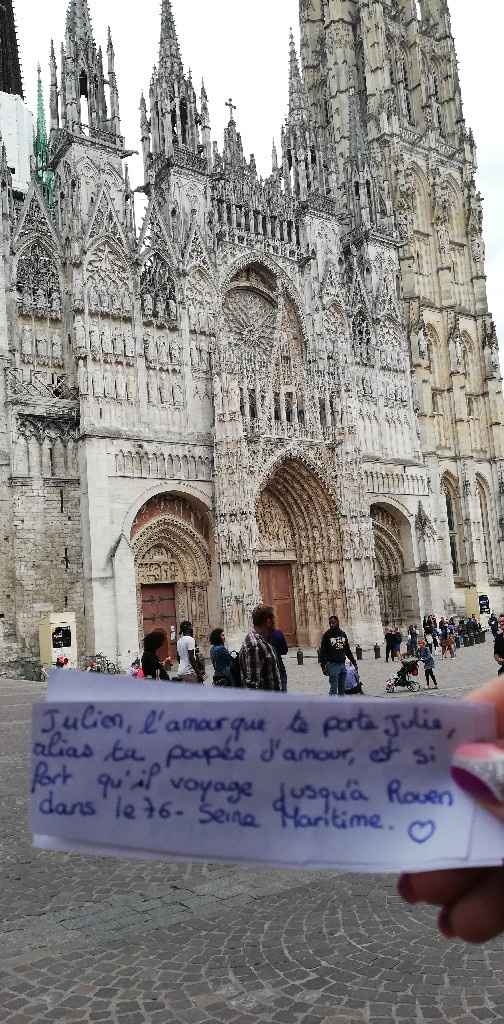 Julien, l'amour que te porte Julie,
alias ta poupée d'amour, est si
fort qu'il voyage jusqu'à Rouen
dans le 76 - Seine Maritime. ♡